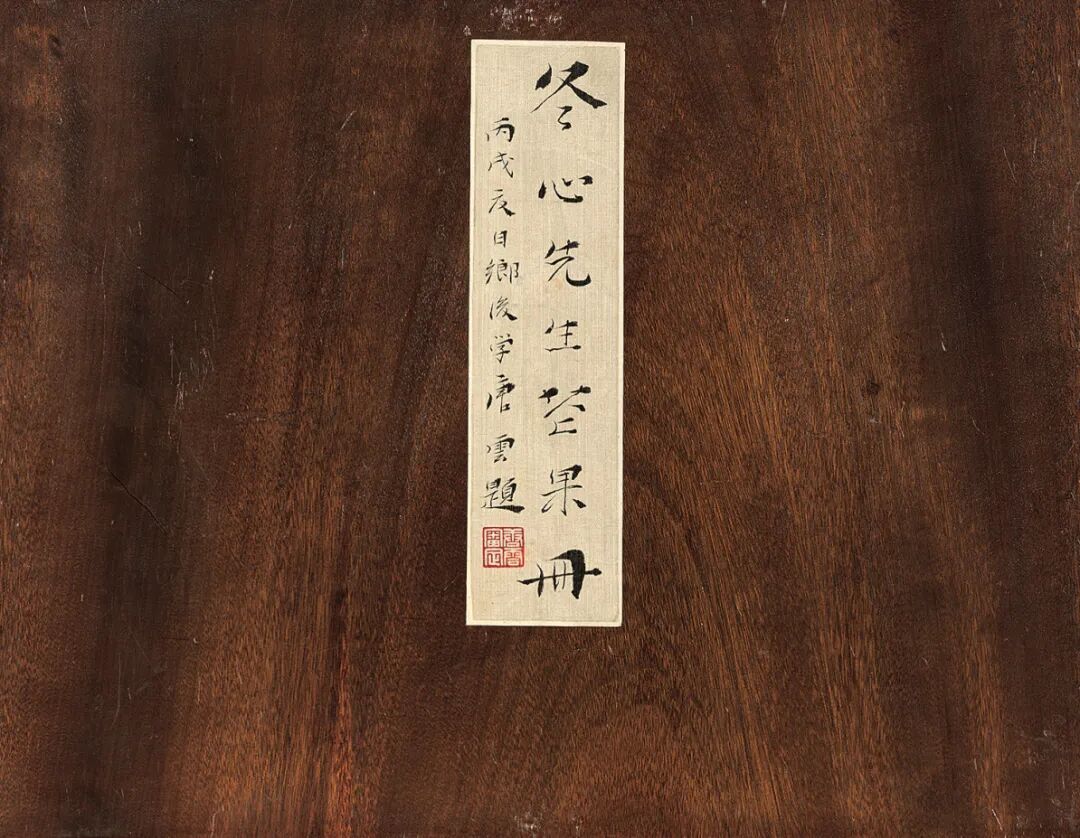 冬心先生花果冊
丙戌夏日鄉後学唐雲題